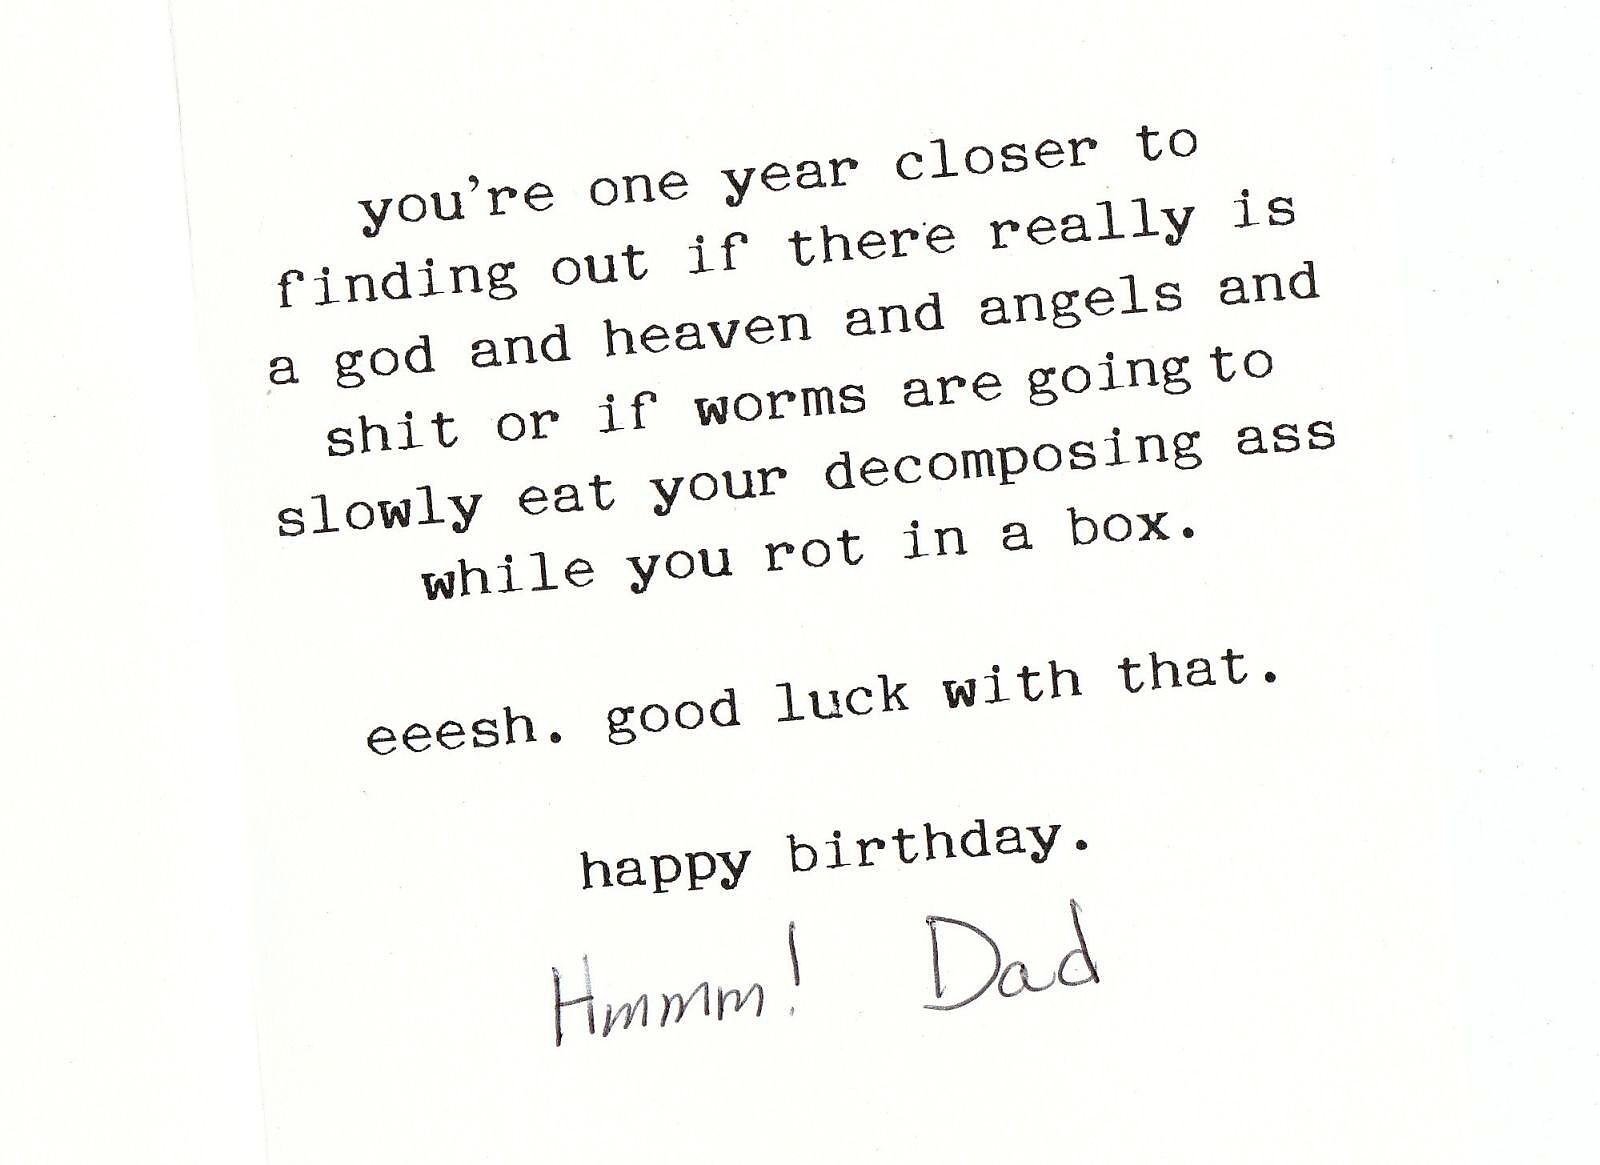 you're one year closer to
finding out if there really is
a god and heaven and angels and
shit or if worms are going to
slowly eat your decomposing ass
while you rot in a box.
eeesh. good luck with that.
happy birthday.
Hmmm! Dad